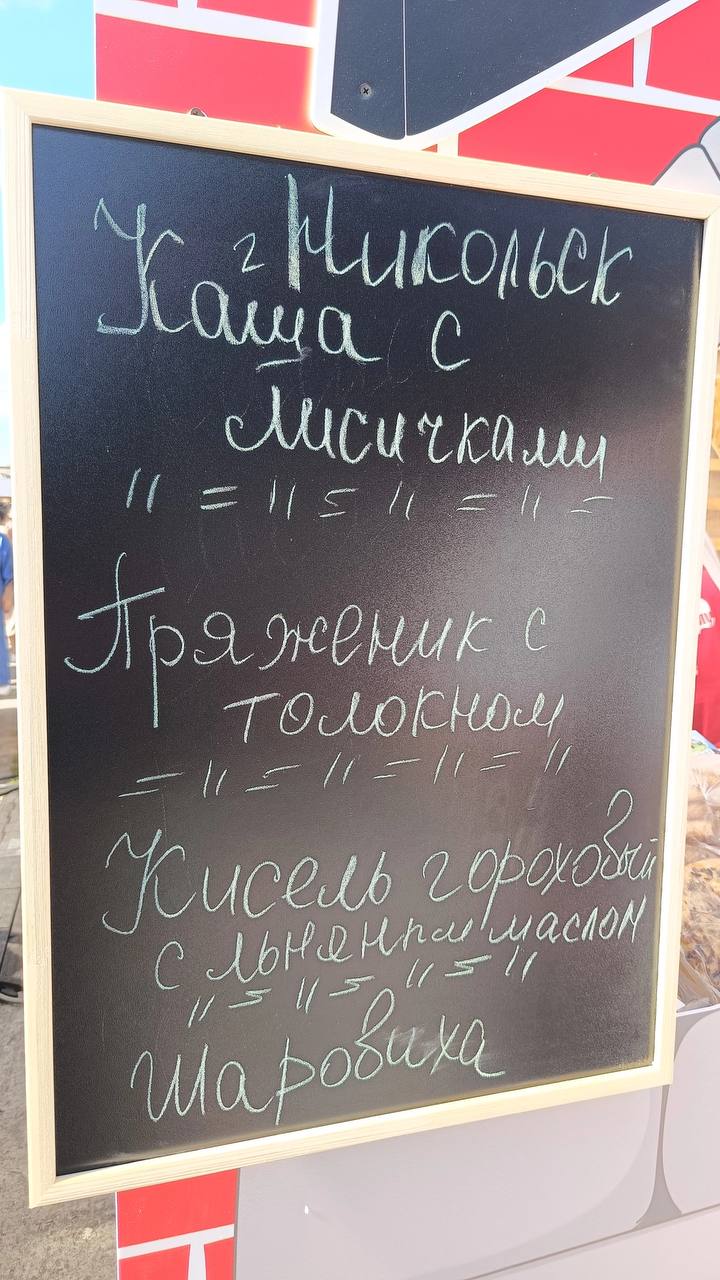 г Никольск
Каша с
лисичками
" = " = " = " =
Пряженик с
толокном
= " = " = " = "
Кисель гороховый
с льняным маслом
" = " = " = "
Шаровиха